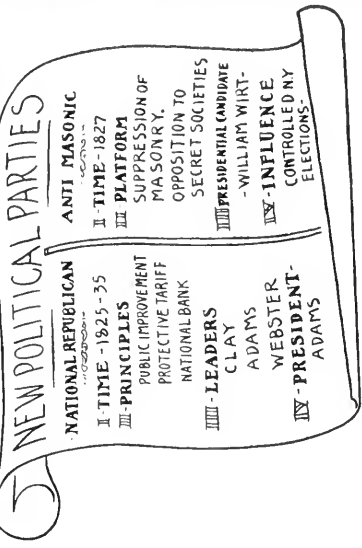 NEW POLITICAL PARTIES
NATIONAL REPUBLICAN
II-TIME-1825-35
III-PRINCIPLES
PUBLIC IMPROVEMENT
PROTECTIVE TARIFF
NATIONAL BANK
IIII-LEADERS
CLAY
ADAMS
WEBSTER
IV-PRESIDENT-
ADAMS
ANTI MASONIC
II-TIME-1827
III PLATFORM
SUPPRESSION OF
MASONRY.
OPPOSITION TO
SECRET SOCIETIES
IIII PRESIDENTIAL CANDIDATE
-WILLIAM WIRT-
IV-INFLUENCE
CONTROLLED N.Y
ELECTIONS-